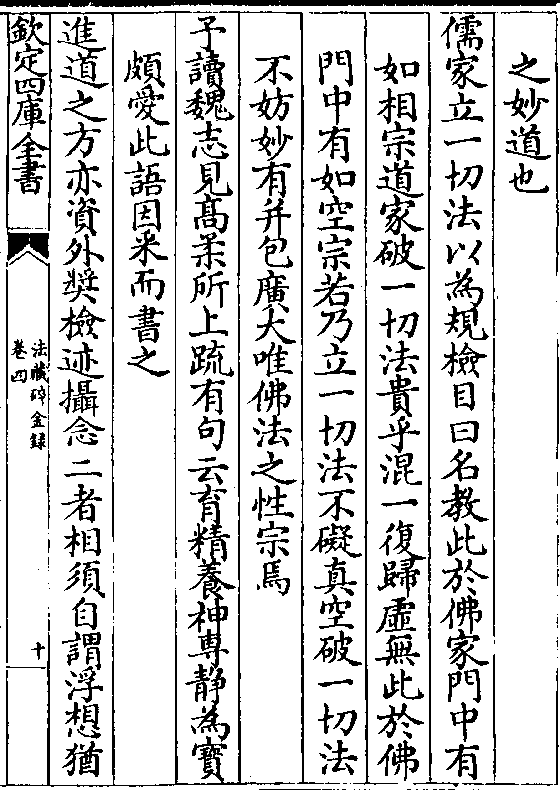 之妙道也
儒家立一切法以為規檢目曰名教此於佛家門中有
如相宗道家破一切法貴乎混一復歸虛無此於佛
門中有如空宗若乃立一切法不礙真空破一切法
不妨妙有并包廣大唯佛法之性宗焉
予讀魏志見髙柔所上䟽有句云育精養神専靜為寳
頗愛此語因釆而書之
進道之方亦資外奨檢迹攝念二者相須自謂浮想猶
欽定四庫全書
法藏碎金録
卷四
十